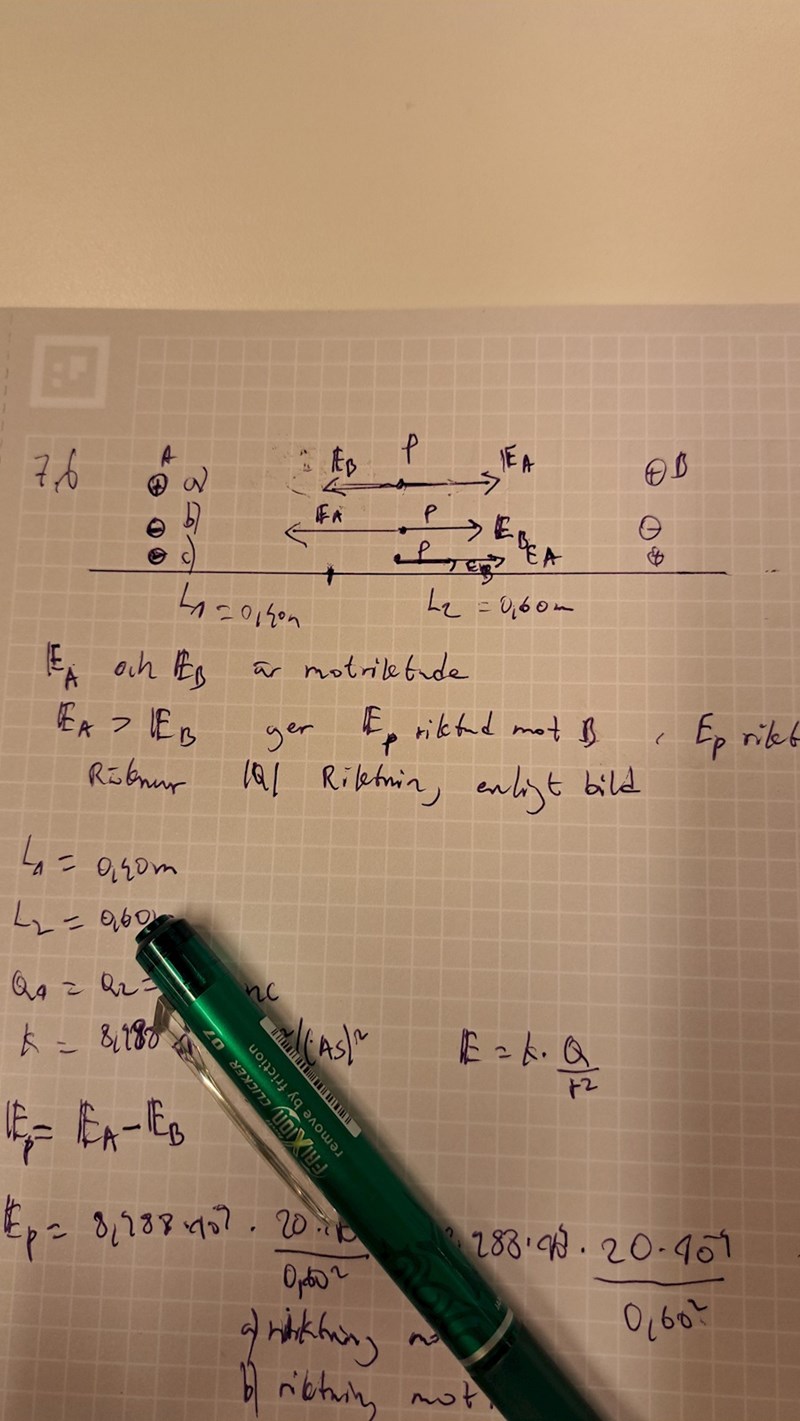 7,6 A EB P EA
⊕ a) ⊕ B
⊖ b) EA P EB ⊖
c) P EB EA ⊕
L1 = 0,40m L2 = 0,60m
EA och EB är motriktade
EA > EB ger Ep riktad mot B , Ep rikt
Räknar |Q| Riktning enligt bild
L1 = 0,40m
L2 = 0,60
Q1 = Q2 = nC
k = 8,988 /(As)² E = k · Q/r²
Ep = EA - EB
Ep = 8,988·10⁹ · 20·10 /0,40² 988·10⁹ · 20·10⁻⁹/0,60²
a) riktning mo
b) riktning mot
FRIXION CLICKER 07
remove by friction